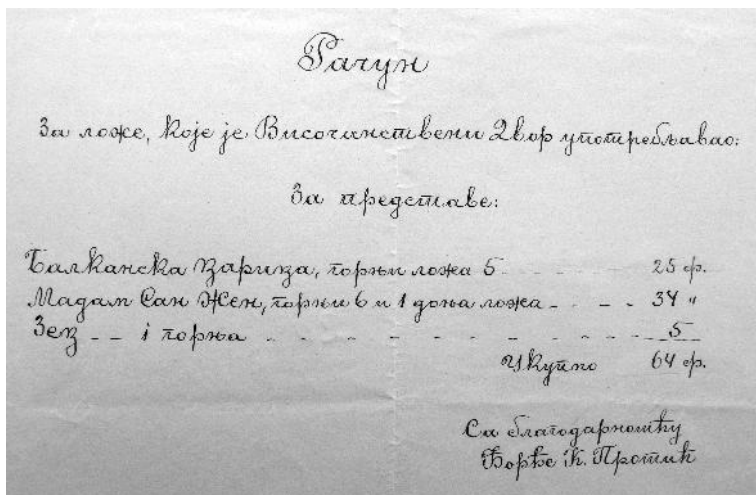 Рачун
За ложе, које је Височанствени Двор употребљавао:
За представе:
Балканска Царица, горњи ложа 5 - - - - 25 ф.
Мадам Сан Жен, горњи 6 и 1 доња ложа - - - - 34 "
Зец - - 1 горња - - - - - - - - - - 5
Укупно 64 ф.
Са благодарношћу
Ђорђе К. Протић